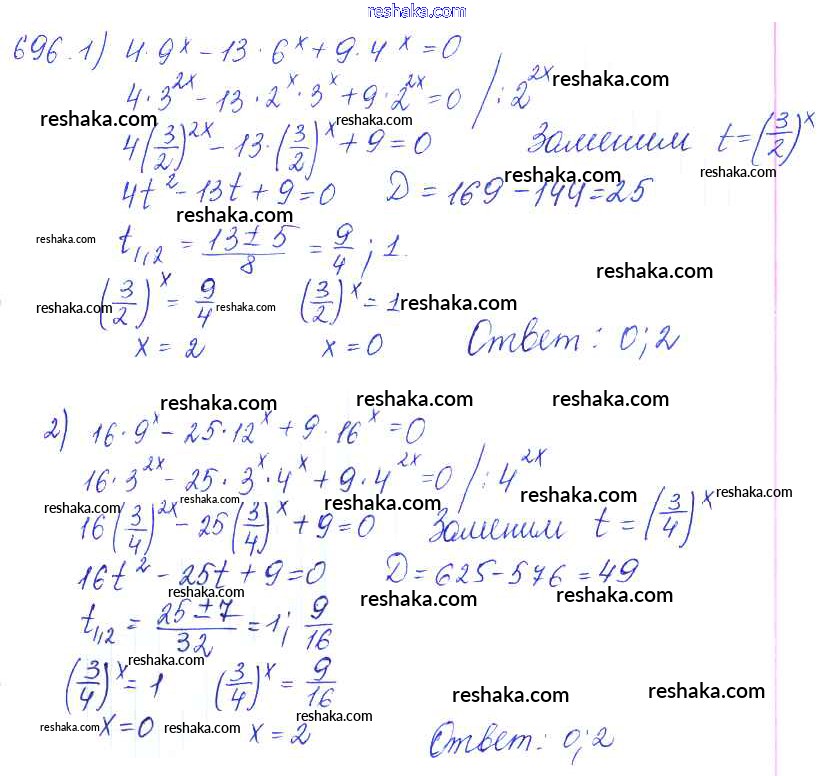 reshaka.com
696. 1) 4·9^x - 13·6^x + 9·4^x = 0
4·3^2x - 13·2^x·3^x + 9·2^2x = 0 /: 2^2x reshaka.com
reshaka.com reshaka.com
4(3/2)^2x - 13·(3/2)^x + 9 = 0 Заменим t = (3/2)^x
reshaka.com reshaka.com
4t^2 - 13t + 9 = 0 D = 169 - 144 = 25
reshaka.com
reshaka.com t1,2 = (13 ± 5)/8 = 9/4; 1.
reshaka.com
reshaka.com (3/2)^x = 9/4 reshaka.com (3/2)^x = 1 reshaka.com
x = 2 x = 0 Ответ: 0; 2
reshaka.com reshaka.com reshaka.com
2) 16·9^x - 25·12^x + 9·16^x = 0
16·3^2x - 25·3^x·4^x + 9·4^2x = 0 /: 4^2x
reshaka.com reshaka.com reshaka.com reshaka.com reshaka.com
16(3/4)^2x - 25(3/4)^x + 9 = 0 Заменим t = (3/4)^x
16t^2 - 25t + 9 = 0 D = 625 - 576 = 49
reshaka.com reshaka.com reshaka.com
t1,2 = (25 ± 7)/32 = 1; 9/16
reshaka.com
(3/4)^x = 1 (3/4)^x = 9/16
reshaka.com reshaka.com
reshaka.com x = 0 reshaka.com x = 2 reshaka.com
Ответ: 0; 2